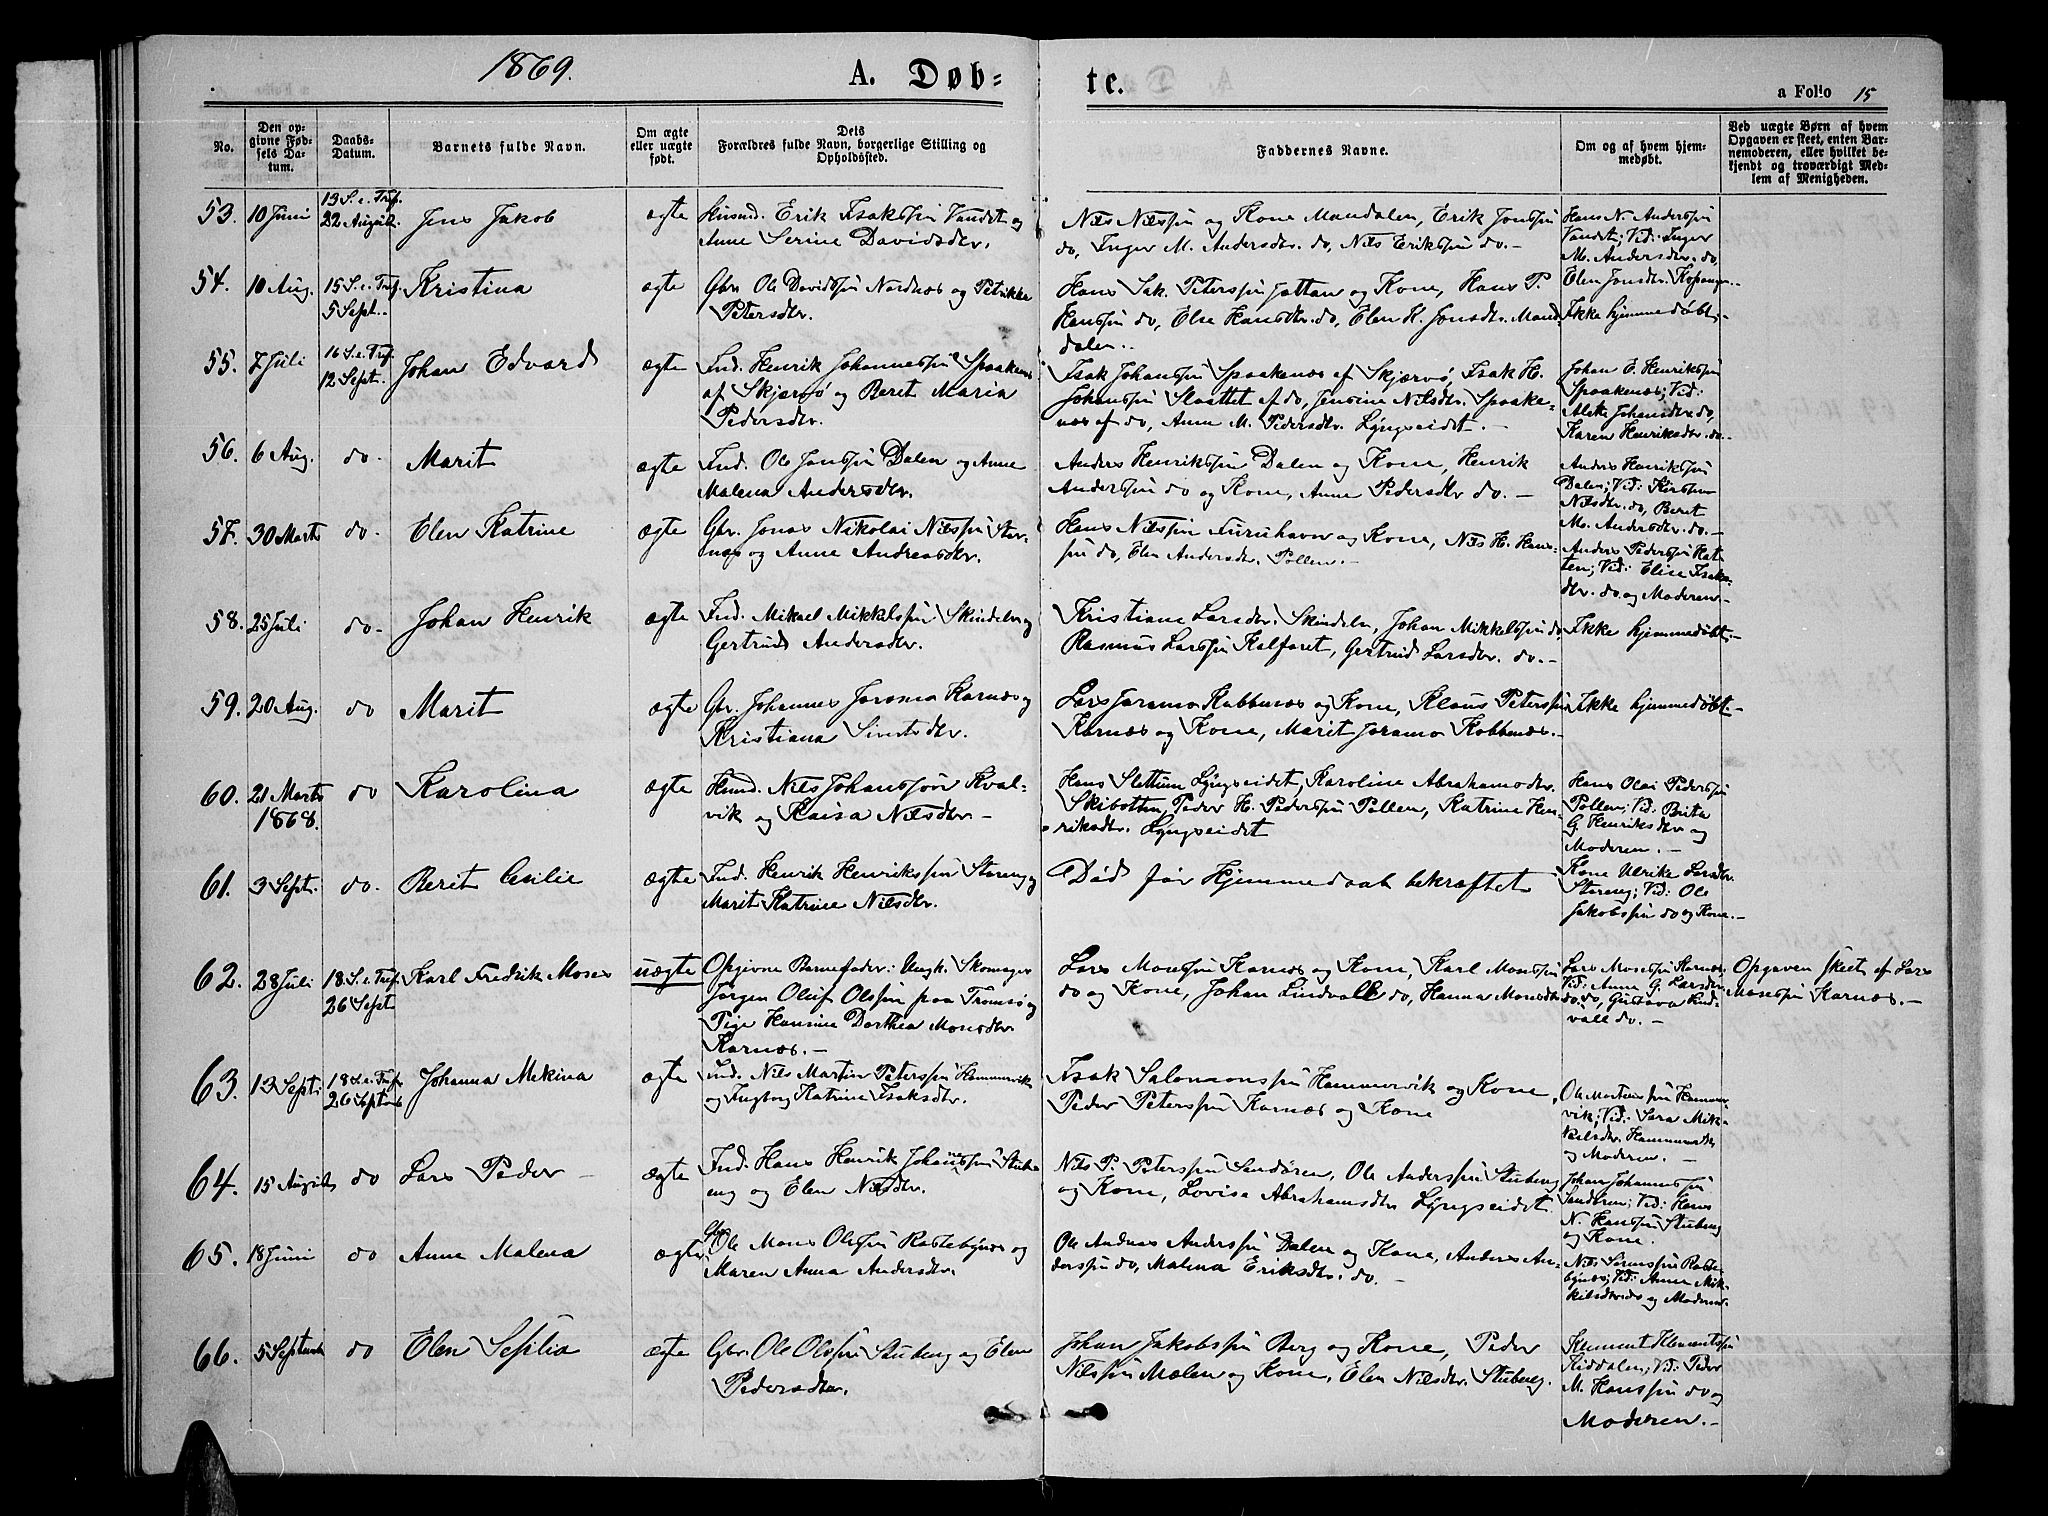 1869.
A. Døb=
te.
a Folio 15
No.
Den op-
givne Fød-
sels Da-
tum.
Daabs-
Datum.
Barnets fulde Navn.
Om ægte
eller uægte
født.
Dets
Forældres fulde Navn, borgerlige Stilling og
Opholdssted.
Faddernes Navne.
Om og af hvem hjem-
medøbt.
Ved uægte Børn af hvem
Opgaven er skeet, enten Bar-
nemoderen, eller hvilket be-
kjendt og troværdigt Med-
lem af Menigheden.
53. 10 Juni
13 S. e. Tref.
22 August
Jens Jakob
ægte
Husmd. Erik Isakssøn Vandet og
Anne Serine Davidsdtr.
Nils Nilssøn og Kone Mandalen, Erik Jonssøn
do, Inger M. Andersdtr. do, Nils Erikssøn do. -
Hans N. Anderssøn
Vandet; Vid: Inger
M. Andersdtr. do,
Elen Jonsdtr. Kopangen.-
54. 10 Aug.
15 S. e. Tref.
5 Sept.
Kristina
ægte
Gbr. Ole Davidssøn Nordnæs og Petrikke
Petersdtr.
Hans Sak. Peterssøn Jattan og Kone, Hans P.
Hanssøn do, Else Hansdtr. do, Elen H. Jonsdtr. Man-
dalen.
Ikke hjemmedøbt.
55. 7 Juli
16 S. e. Tref.
12 Sept.
Johan Edvard
ægte
Ind. Henrik Johannessøn Spaakenæs
af Skjærvø og Berit Maria
Pedersdtr.
Isak Johanssøn Spaakenæs af Skjærvø, Isak H.
Johanssøn Slaattet af do, Jensine Nilsdtr. Spaake-
næs af do, Anne M. Pedersdtr. Lyngseidet. -
Johan E. Henrikssøn
Spaakenæs; Vid:
Alet Johansdtr. do,
Karen Henriksdtr. do.-
56. 6 Aug.
do.
Marit
ægte
Ind. Ole Jonssøn Dalen og Anne
Malena Andersdtr.
Anders Henrikssøn Dalen og Kone, Henrik
Anderssøn do og Kone, Anne Pedersdtr do. -
Anders Henrikssøn
Dalen; Vid: Kirsten
Nilsdtr. do, Beret
M. Andersdtr. do. -
57. 30 Marts
do.
Elen Katrine
ægte
Gbr. Jonas Nikolai Nilssøn Stor-
næs og Anne Andreasdtr.
Hans Nilssøn Furuhavn og Kone, Nils H. Hans-
søn do, Elen Andersdtr. Pollen. -
Anders Pederssøn Kat-
ten; Vid: Elise Isaks-
dtr. do og Moderen-
58. 25 Juli
do-
Johan Henrik
ægte
Ind. Mikael Mikkelssøn Skindelv og
Gertrud Andersdtr.
Kristiane Larsdtr. Skindelv, Johan Mikkelssøn do,
Rasmus Larssøn Kalfaret, Gertrud Larsdtr. do.-
Ikke hjemmedøbt.-
59. 20 Aug.
do
Marit
ægte
Gbr. Johannes Joramo Karnæs og
Kristiana Sivertsdtr.
Lars Joramo Kobbenæs og Kone, Klaus Peterssøn
Karnæs og Kone, Marit Joramo Kobbenæs.-
Ikke hjemmedøbt.-
60. 21 Marts
1868.
do
Karolina
ægte
Husmd. Nils Johanssøn Kval-
vik og Kaisa Nilsdtr -
Hans Slettum Lyngseidet, Karoline Abrahamsdtr.
Skibotten, Peder H. Pederssøn Pollen, Katrine Hen-
riksdtr. Lyngseidet
Hans Olai Pederssøn
Pollen; Vid: Brita
G. Henriksdtr og
Moderen. -
61. 3 Sept.
do.
Berit Cesilie
ægte
Ind. Henrik Henrikssøn Storeng og
Marit Katrine Nilsdtr.
Død før Hjemmedaab bekræftet
Kone Ulrike Larsdtr.
Storeng; Vid: Ole
Jakobssøn do og Kone.-
62. 28 Juli
18 S. e. Tref.
26 Sept
Karl Fredrik Moses
uægte
Opgivne Barnefader: Ungk. Skomager
Jørgen Oluf Olssøn paa Tromsø og
Pige Hansine Dorthea Monsdtr
Karnæs. -
Lars Monssøn Karnæs og Kone, Karl Monssøn
do og Kone, Johan Lindvall do, Hanna Monsdtr
do.
Lars Monssøn Karnæs
Vid: Anne G. Larsdtr.
do, Gustava Lind-
vall do. -
Opgaven skeet af Lars
Monssøn Karnæs. -
63. 13 Sept.
18 S. e. Tref.
26 Septemb
Johanna Mekina
ægte
Ind. Nils Martin Peterssøn Hammervik
og Ingborg Katrine Isaksdtr.
Isak Salomonssøn Hammervik og Kone,
Peder Peterssøn Karnæs og Kone
Ole Mortenssøn Hammer-
vik; Vid: Sara Mik-
kelsdtr. Hammervik
og Moderen. -
64. 15 August
do
Lars Peder -
ægte
Ind. Hans Henrik Johannessøn Stuben-
eng og Elen Nilsdtr.
Nils P. Peterssøn Sandøren, Ole Anderssøn Stubeng
og Kone, Lovisa Abrahamsdtr Lyngseidet.
Johan Johannessøn
Sandøren; Vid: Hans
N. Hanssøn Stubeng
og Kone.
65. 18 Juni
do
Anne Malena
ægte
Gbr. Ole Mons Olssøn Rastebynæs og
Maren Anna Andersdtr.
Ole Andreas Anderssøn Dalen og Kone, Anders An-
derssøn do, Malena Eriksdtr. do. -
Nils Sørenssøn Raste-
bynæs; Vid: Anne Mik-
kelsdtr do og Moderen.
66. 5 Septemb
do
Elen Sesilia
ægte
Gbr. Ole Olssøn Stubeng og Elen
Pedersdtr.
Johan Jakobssøn Berg og Kone, Peder
Nilssøn Mælen og Kone, Elen Nilsdtr. Stubeng.
Klement Klementssøn
Kiddalen; Vid: Peder
M. Hanssøn do og
Moderen. -